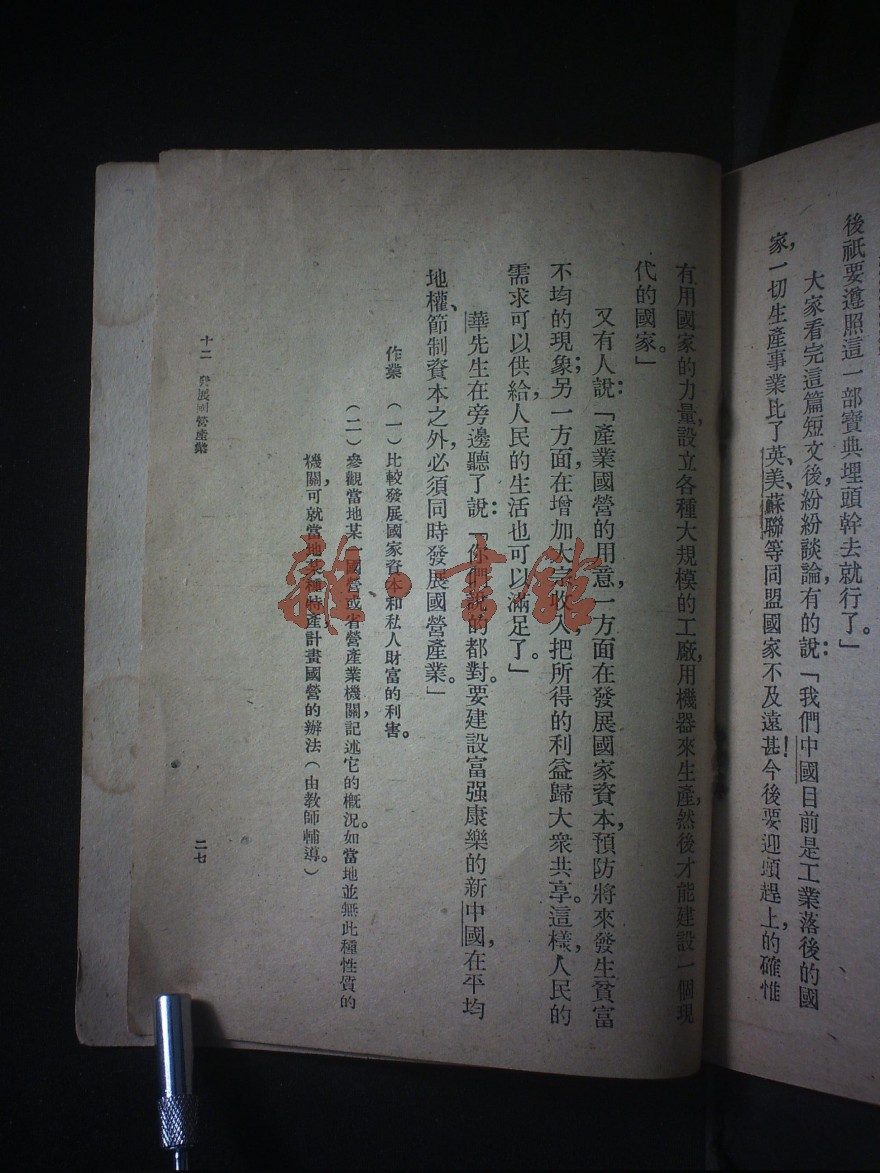 後祇要遵照這一部寶典埋頭幹去就行了。」
大家看完這篇短文後，紛紛談論，有的說：「我們中國目前是工業落後的國
家，一切生產事業比了英、美、蘇聯等同盟國家不及遠甚！今後要迎頭趕上，的確惟
有用國家的力量，設立各種大規模的工廠，用機器來生產，然後才能建設一個現
代的國家。」
又有人說：「產業國營的用意，一方面在發展國家資本，預防將來發生貧富
不均的現象；另一方面在增加大宗收入，把所得的利益歸大衆共享。這樣，人民的
需求可以供給，人民的生活也可以滿足了。」
華先生在旁邊聽了說：「你們說的都對。要建設富强康樂的新中國，在平均
地權、節制資本之外，必須同時發展國營產業。」
作業　（一）比較發展國家資本和私人財富的利害。
（二）參觀當地某一國營或省營產業機關，記述它的概況。如當地並無此種性質的
機關，可就當地某種特產，計畫國營的辦法（由教師輔導。）
十二　發展國營產業
二七
雜·書館